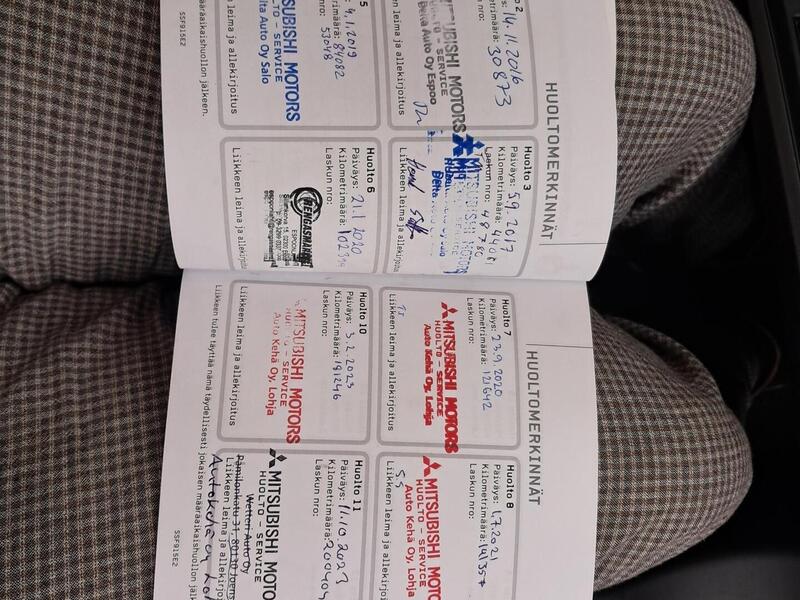 HUOLTOMERKINNÄT
o 2
14.11.2016
imäärä: 30873
nro:
MITSUBISHI MOTORS
HUOLTO - SERVICE
Delta Auto Oy Espoo
leima ja allekirjoitus
Huolto 3
Päiväys: 5.9.2017
Kilometrimäärä:
Laskun nro: 48780
MITSUBISHI MOTORS
Liikkeen leima ja allekirjoitus
5
4.1.2019
rimäärä: 84082
nro: 53048
MITSUBISHI MOTORS
HUOLTO - SERVICE
Delta Auto Oy Salo
leima ja allekirjoitus
Huolto 6
Päiväys: 21.1.2020
Kilometrimäärä:
Laskun nro:
RENGASMARKET
ESPOO
Liikkeen leima ja allekirjoitus
määräaikaishuollon jälkeen.
SSF915E2
HUOLTOMERKINNÄT
Huolto 7
Päiväys: 23.9.2020
Kilometrimäärä: 121642
Laskun nro:
MITSUBISHI MOTORS
HUOLTO - SERVICE
Auto Kehä Oy, Lohja
Liikkeen leima ja allekirjoitus
Huolto 8
Päiväys: 1.7.2021
Kilometrimäärä: 141357
Laskun nro:
MITSUBISHI MOTORS
HUOLTO - SERVICE
Auto Kehä Oy, Lohja
Liikkeen leima ja allekirjoitus
Huolto 10
Päiväys: 3.2.2023
Kilometrimäärä: 181246
Laskun nro:
MITSUBISHI MOTORS
HUOLTO - SERVICE
Auto Kehä Oy, Lohja
Liikkeen leima ja allekirjoitus
Huolto 11
Päiväys: 11.10.2023
Kilometrimäärä: 200404
Laskun nro:
MITSUBISHI MOTORS
HUOLTO - SERVICE
Wetteri Auto Oy
Liikkeen leima ja allekirjoi
Autokehä oy Loh
Liikkeen tulee täyttää nämä täydellisesti jokaisen määräaikaishuollon jäl
SSF915E2